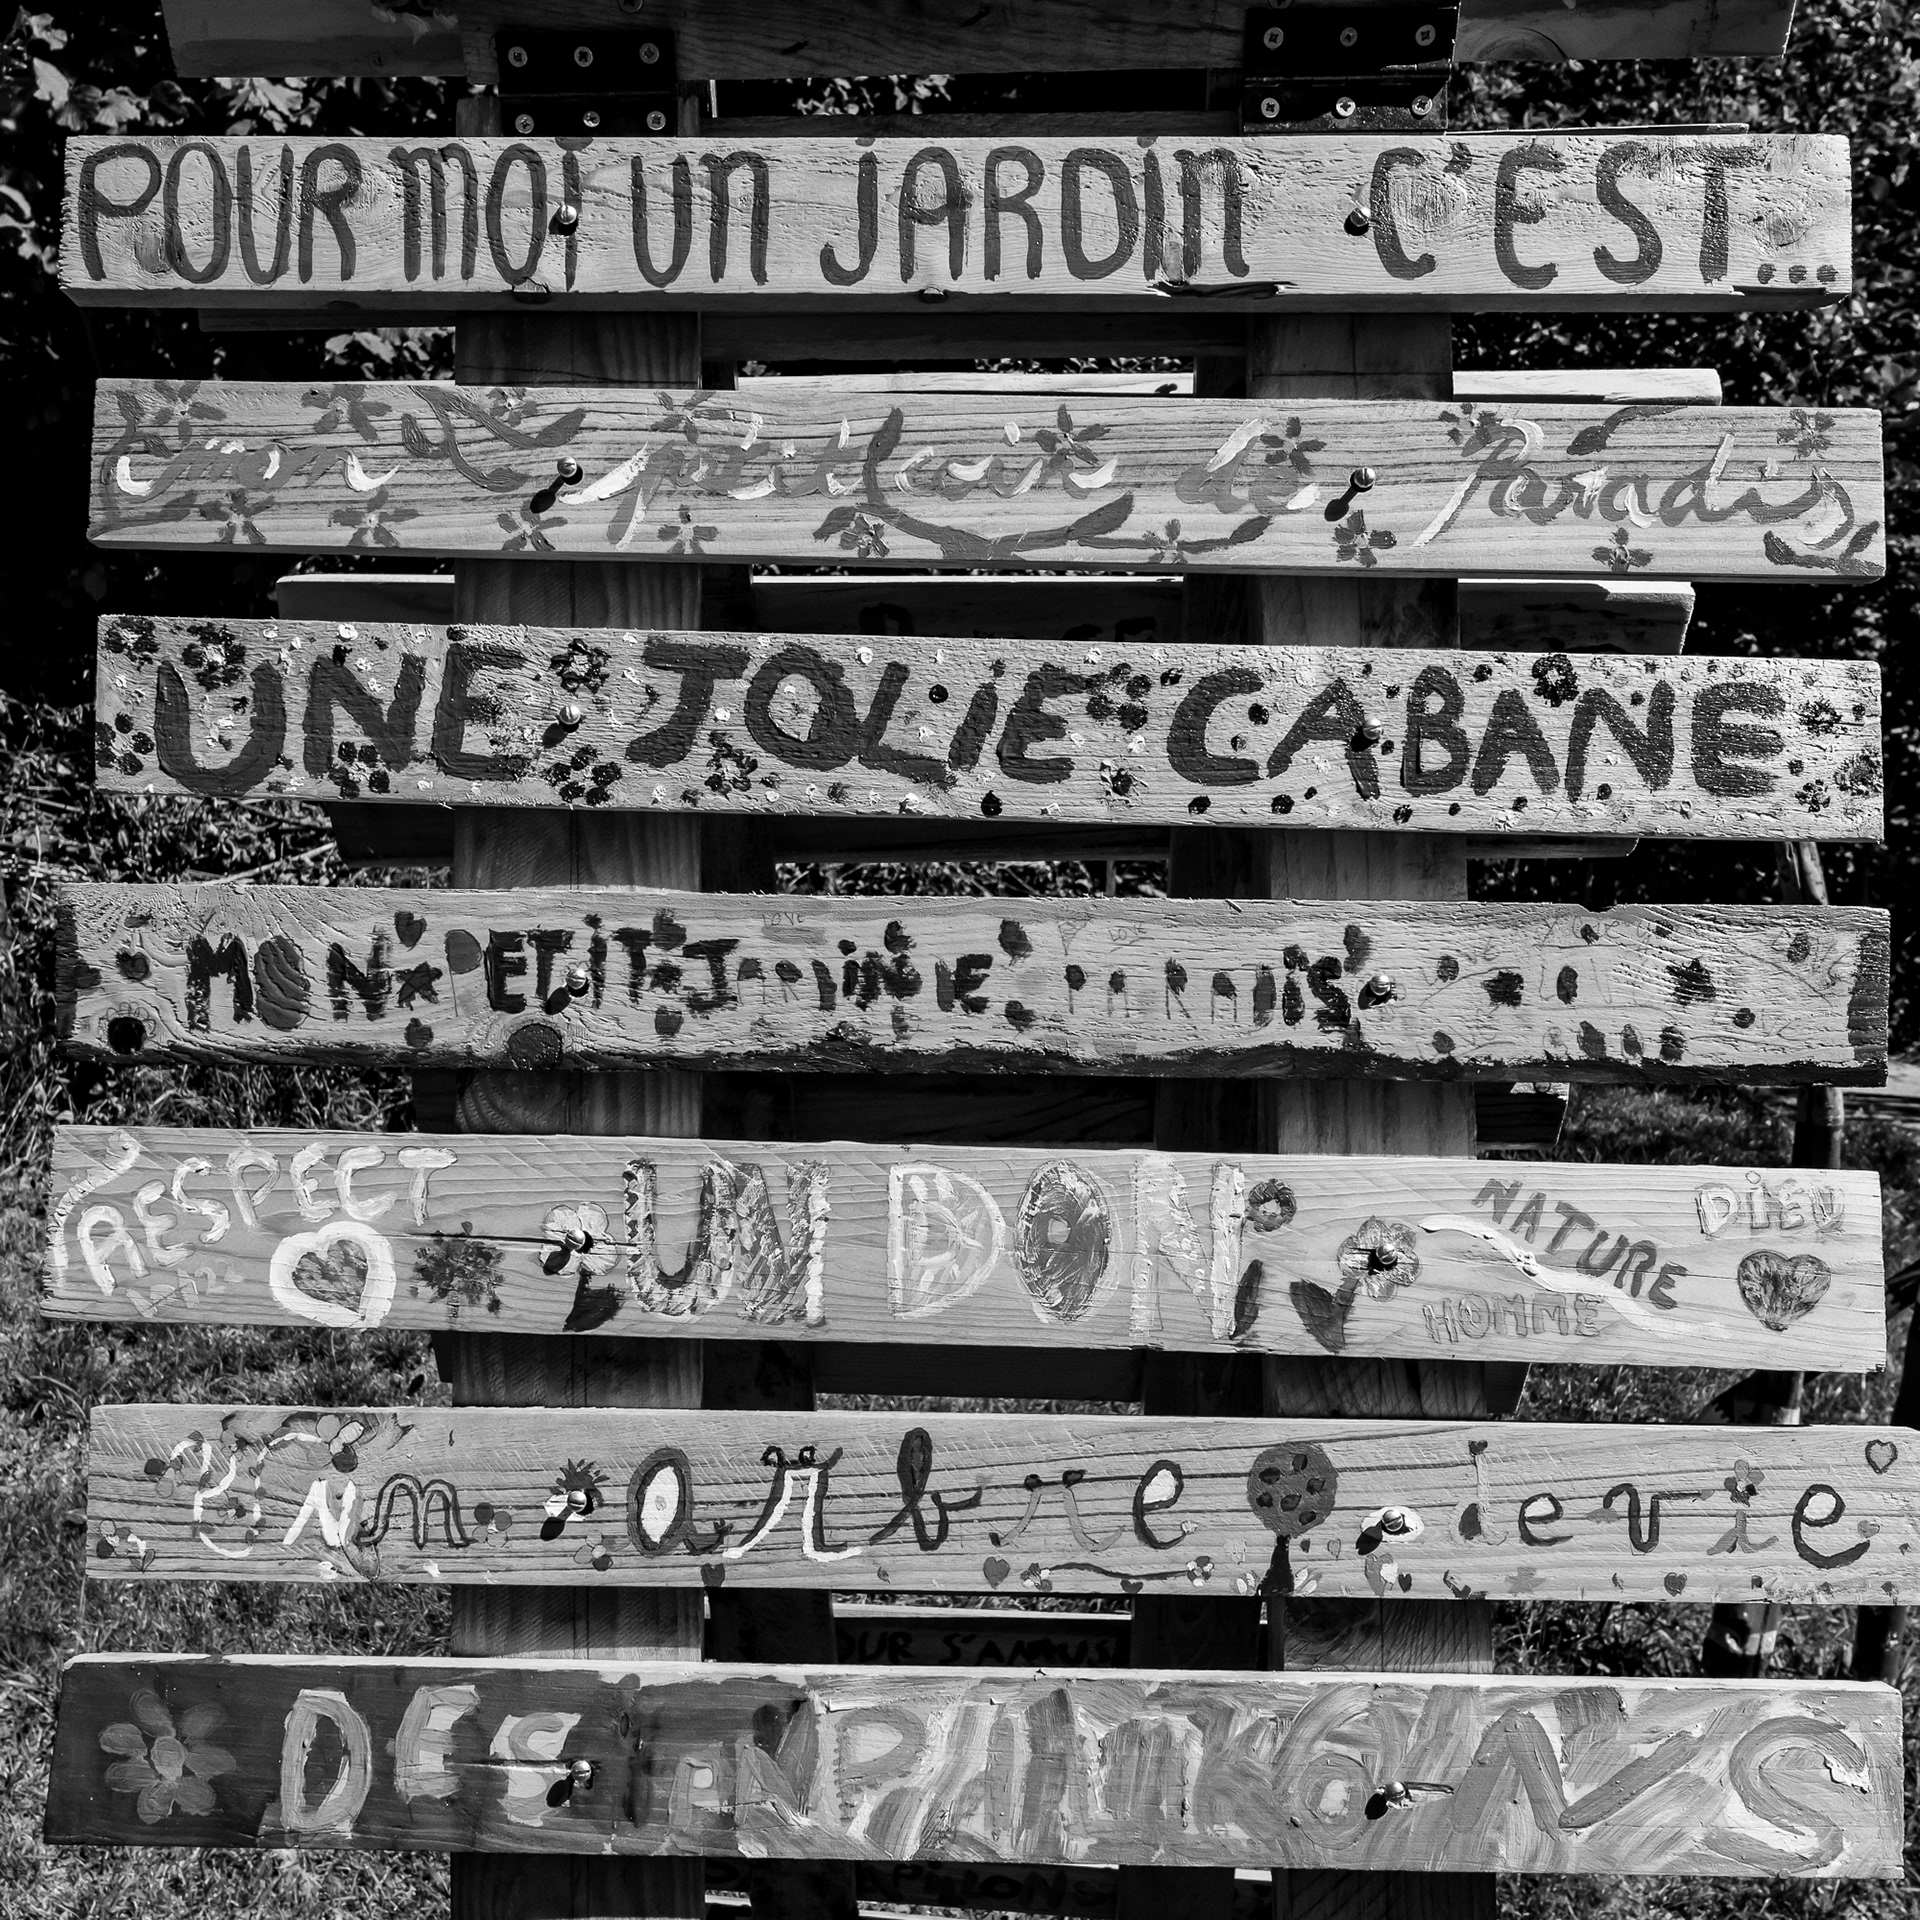 POUR MOI UN JARDIN C'EST...
mon petit coin de Paradis
UNE JOLIE CABANE
MON PETIT JARDIN PARADIS
LOVE
LOVE
RESPECT UN DON NATURE DIEU
HOMME
Un arbre de vie
OUR S'AMUS
DES PAPILLONS
APILLON